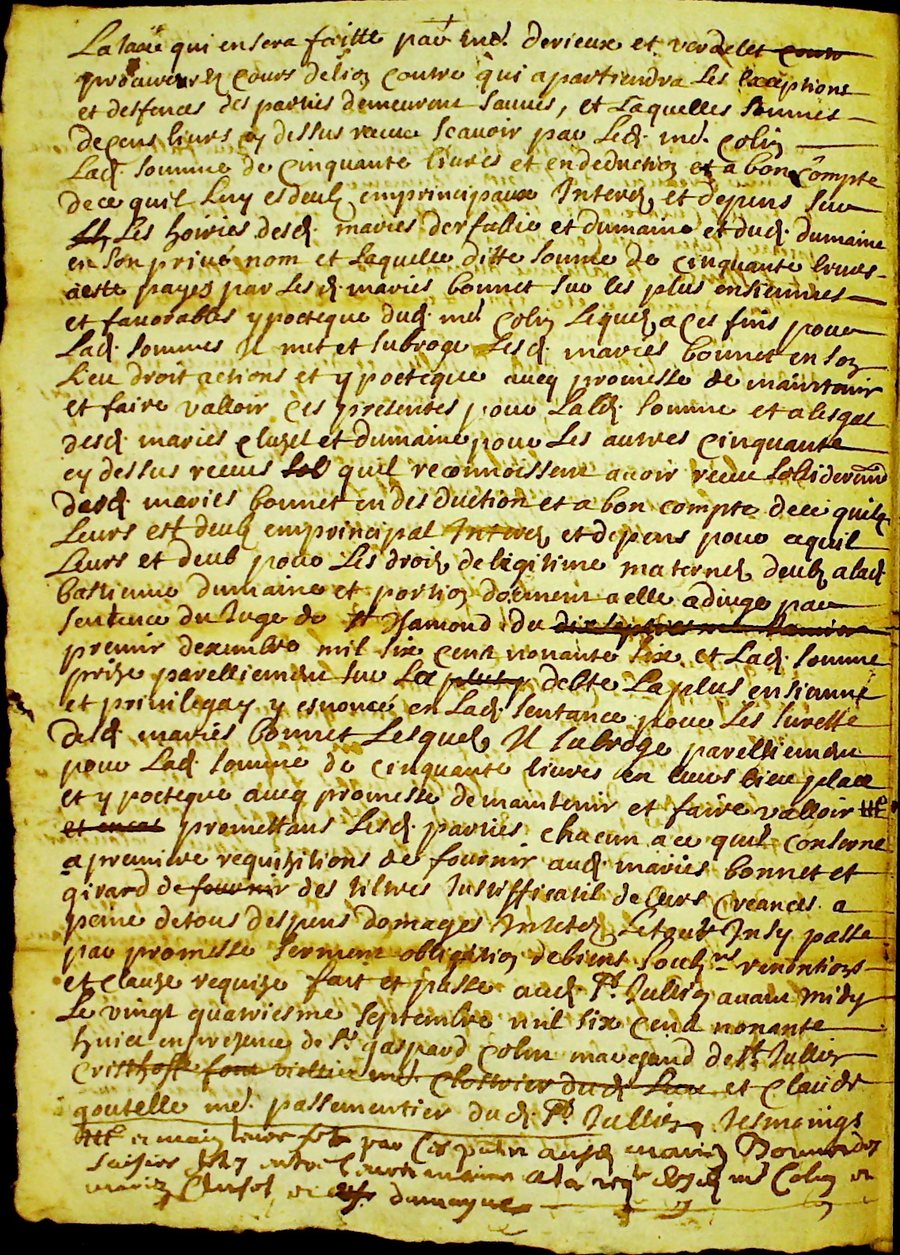 La taxe qui en sera faitte par me. derieux et verdelet
procureurs cours de lion contre qui apartiendra Les exceptions
et desfences des parties demeurant sauves, et Laquelles sommes
de cens livres cy dessus receue scavoir par Led. me. Colin
Lad. somme de cinquante livres et en deduction et a bon compte
de ce quil Luy es deub en principaux Interes et depens sur
Les hoiries desd. maries derfallie et dumaine et dud. dumaine
en son privé nom et Laquelle ditte somme de cinquante livres
a este payes par Lesd. maries bonnet sur les plus ensiennes
et favorables ypoteque dud. me Colin Lequel a ces fins pour
Lad. sommes Il met et subroge Lesd. maries bonnet en son
Lieu droit actions et ypoteque avec promesse de maintenir
et faire valloir ces presentes pour Lad. somme et a lesgal
desd. maries Cluzel et dumaine pour Les autres cinquante
cy dessus receus quil reconnoissent avoir receu
desd. maries bonnet en desduction et a bon compte de ce quil
Leurs est deub en principal Interes et depens pour ce quil
Leurs et deub pour Les drois de legitime maternel deub a lad.
bastienne dumaine et portion a elle adiuge par
sentence du Juge de St chamond du
premier dexembre mil six cent nonante six et Lad. somme
prise pareillement sur La debte La plus ensienne
et privilegay y esnoncé en Lad. sentance pour Les surette
desd. maries bonnet Lesquels Il subroge pareillement
pour Lad. somme de cinquante livres en leurs lieu place
et ypoteque avec promesse de maintenir et faire valloir
et encas promettans Lesd. parties chacun a ce quil conserne
a premiere requizitions de fournir aud. maries bonnet et
girard de fournir des tiltres Justifficatif de leurs creances a
peine de tous despens domages Interes Le tout Insy passe
par promesse serment obligation de biens renontions
et clauze requize fait et passe aud. St. Jullien avant midy
Le vingt quatriesme septembre mil six cend nonante
huict en presence de Sr gaspard Colin marchand de St Jullien
Cristhofle et Claude
goutelle me. passementier dud. St Jullien tesmoings
par
dumayne